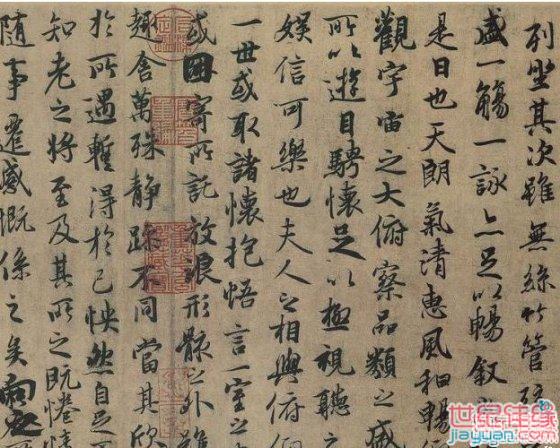 列坐其次雖無絲竹管弦
盛一觴一詠亦足以暢叙
是日也天朗氣清惠風和暢
觀宇宙之大俯察品類之盛
所以遊目騁懷足以極視聽之
娛信可樂也夫人之相與俯仰
一世或取諸懷抱悟言一室之
或因寄所託放浪形骸之外雖
趣舍萬殊靜躁不同當其欣
於所遇暫得於己怏然自足
知老之將至及其所之既惓情
随事遷感慨係之矣向之
世纪佳缘
jiayuan.com